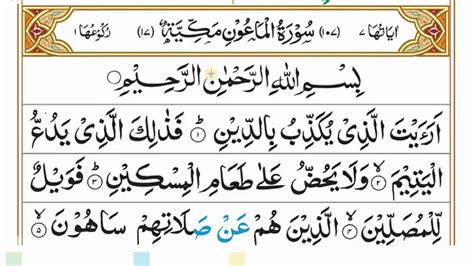 اٰيَاتُهَا ٧ (١٠٧) سُوْرَةُ الْمَاعُوْنِ مَكِّيَّةٌ (١٧) رُكُوْعُهَا ١
بِسْمِ اللّٰهِ الرَّحْمٰنِ الرَّحِيْمِ
اَرَءَيْتَ الَّذِىْ يُكَذِّبُ بِالدِّيْنِ ؕ ١ فَذٰلِكَ الَّذِىْ يَدُعُّ
الْيَتِيْمَ ۙ ٢ وَلَا يَحُضُّ عَلٰى طَعَامِ الْمِسْكِيْنِ ؕ ٣ فَوَيْلٌ
لِّلْمُصَلِّيْنَ ۙ ٤ الَّذِيْنَ هُمْ عَنْ صَلَاتِهِمْ سَاهُوْنَ ۙ ٥